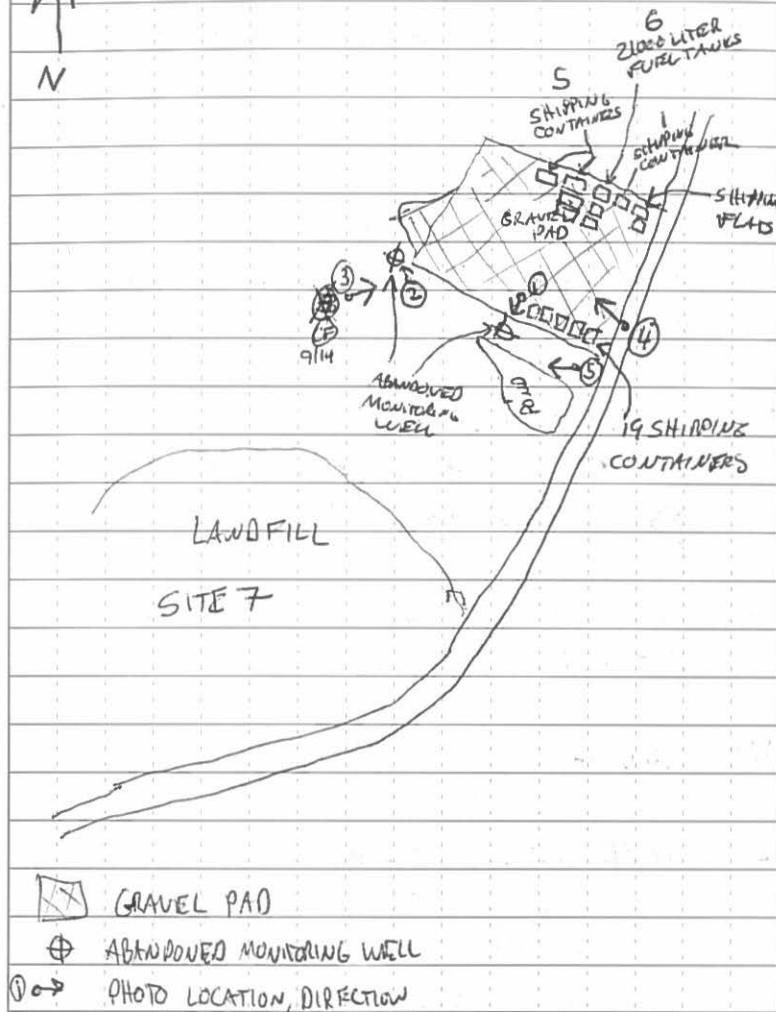 N
6
21000 LITER
FUEL TANKS
5
SHIPPING
CONTAINERS
1
SHIPPING
CONTAINER
SHIPPING
FLATS
GRAVEL
PAD
3
2
1
4
5
9/14
ABANDONED
MONITORING
WELL
19 SHIPPING
CONTAINERS
LANDFILL
SITE 7
GRAVEL PAD
ABANDONED MONITORING WELL
1 PHOTO LOCATION, DIRECTION